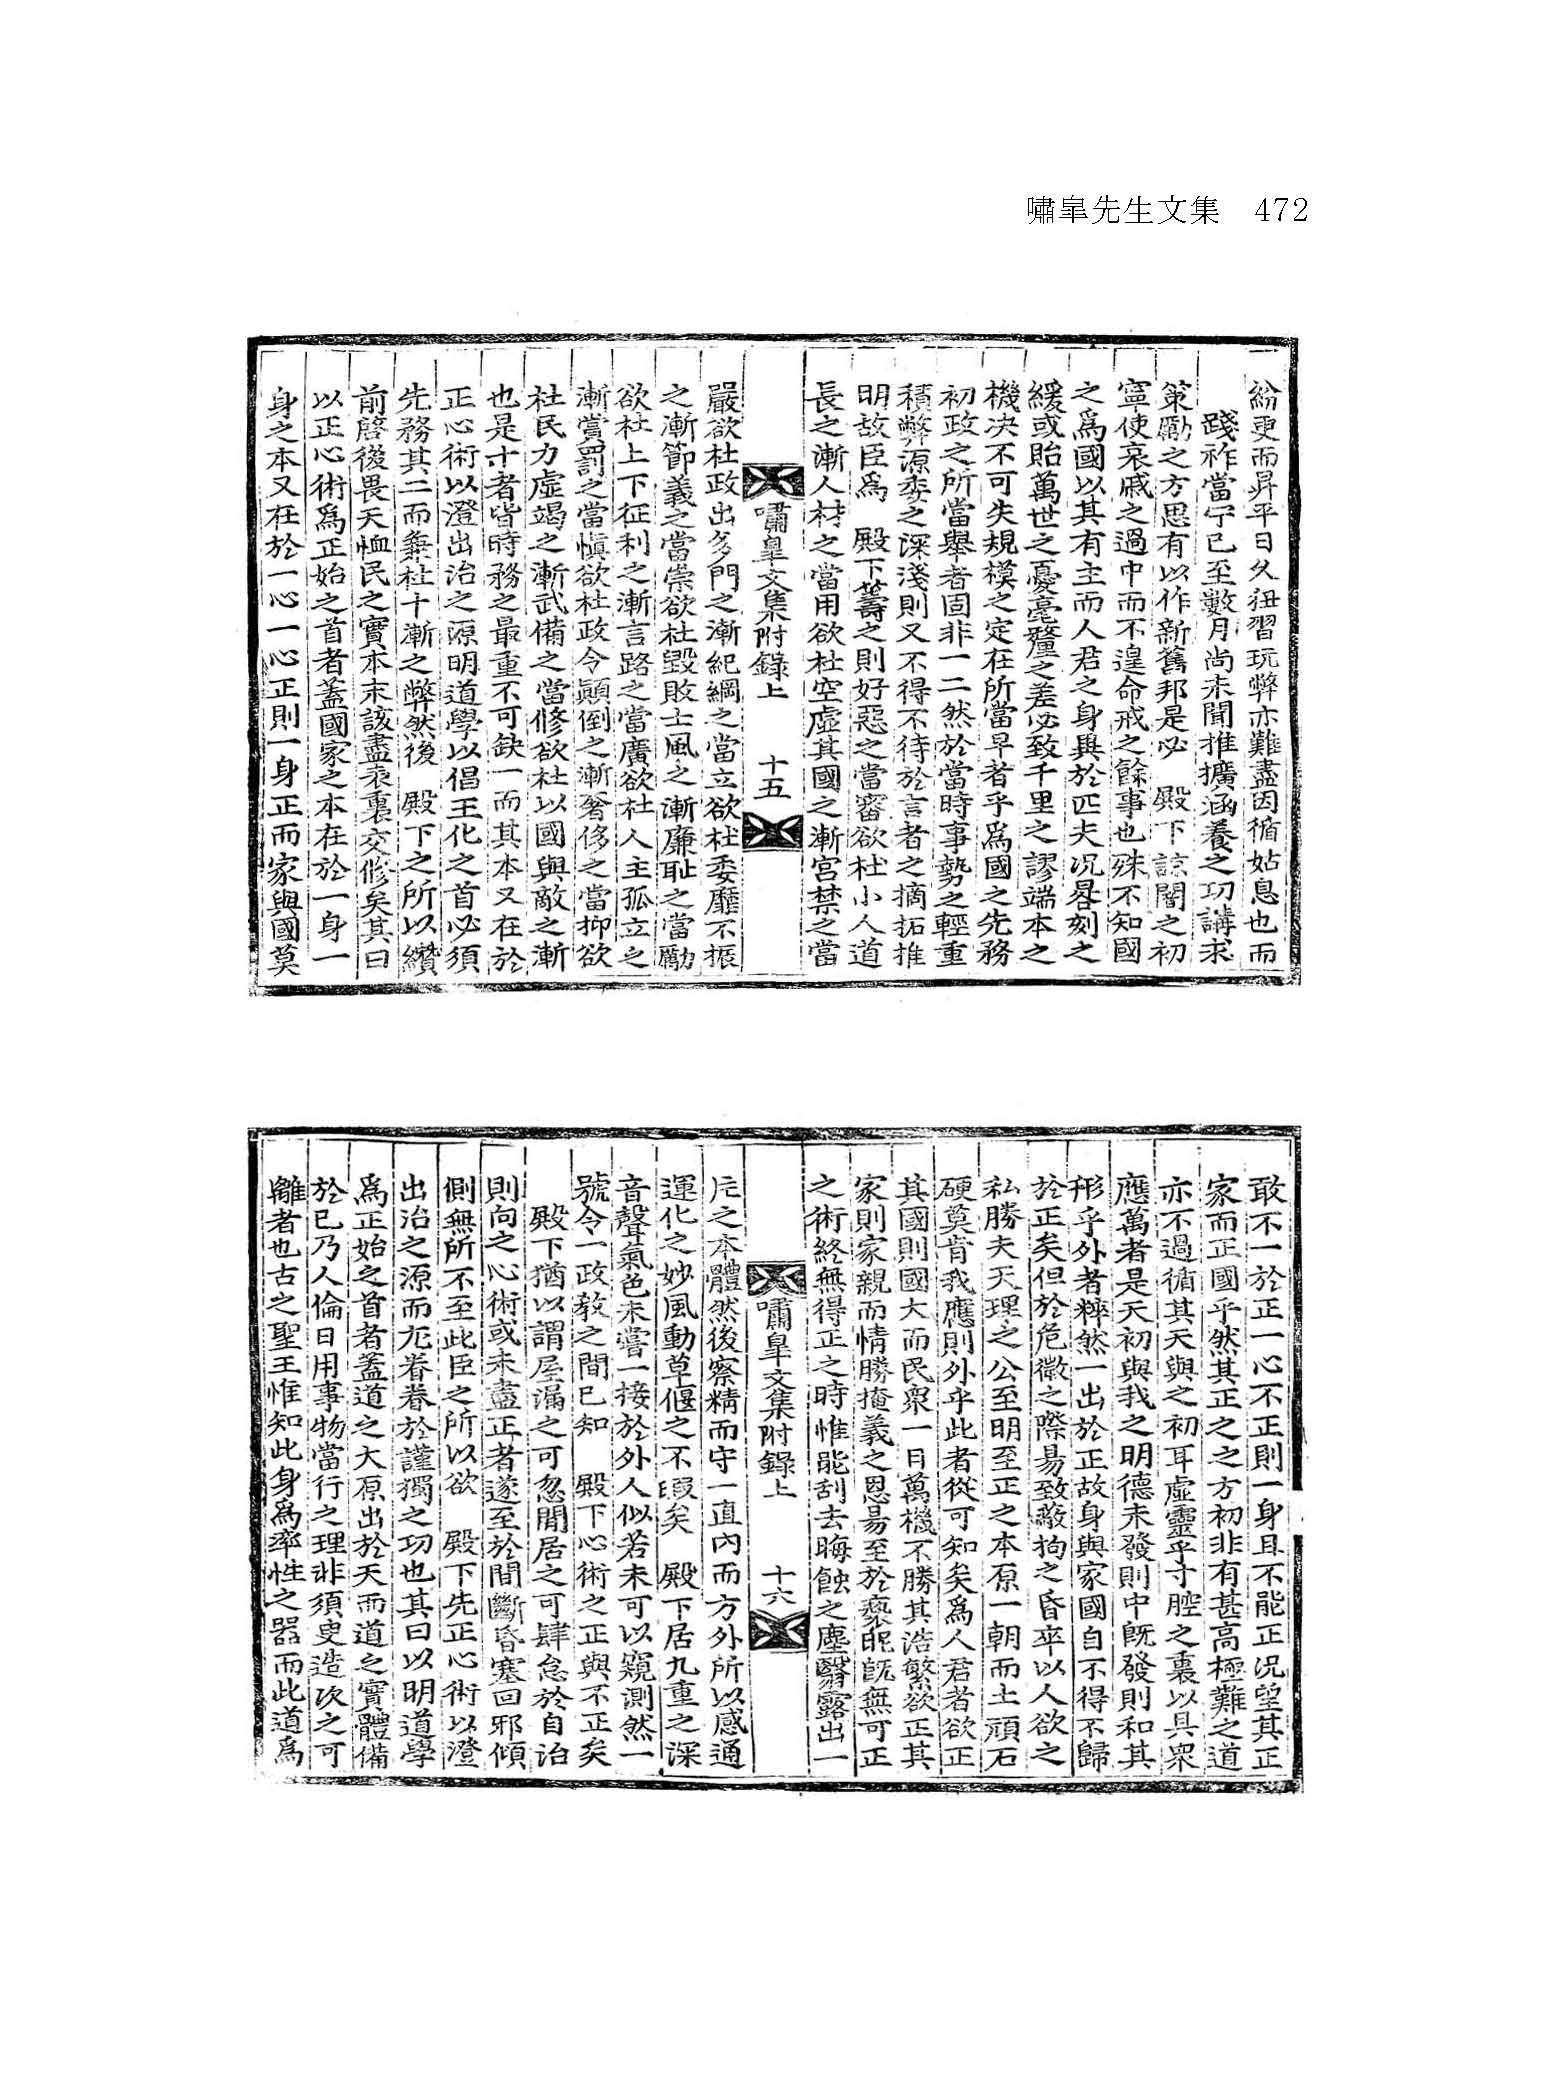 嘯皐先生文集 472
紛更而昇平日久狃習玩弊亦難盡因循姑息也而
踐祚當宁已至數月尚未聞推擴涵養之功講求
策勵之方思有以作新舊邦是必 殿下諒闇之初
寧使哀戚之過中而不遑命戒之餘事也殊不知國
之爲國以其有主而人君之身異於匹夫况晷刻之
緩或貽萬世之憂毫釐之差必致千里之謬端本之
機决不可失規模之定在所當早者乎爲國之先務
初政之所當舉者固非一二然於當時事勢之輕重
積弊源委之深淺則又不得不待於言者之摘拓推
明故臣爲 殿下籌之則好惡之當審欲杜小人道
長之漸人材之當用欲杜空虛其國之漸宮禁之當
嘯皐文集附錄上 十五
嚴欲杜政出多門之漸紀綱之當立欲杜委靡不振
之漸節義之當崇欲杜毀敗士風之漸廉恥之當勵
欲杜上下征利之漸言路之當廣欲杜人主孤立之
漸賞罰之當愼欲杜政令顚倒之漸奢侈之當抑欲
杜民力虛竭之漸武備之當修欲杜以國與敵之漸
也是十者皆時務之最重不可缺一而其本又在於
正心術以澄出治之源明道學以倡王化之首必須
先務其二而兼杜十漸之弊然後 殿下之所以纘
前啓後畏天恤民之實本末該盡表裏交修矣其曰
以正心術爲正始之首者蓋國家之本在於一身一
身之本又在於一心一心正則一身正而家與國莫
敢不一於正一心不正則一身且不能正况望其正
家而正國乎然其正之之方初非有甚高極難之道
亦不過循其天與之初耳虛靈乎寸腔之裏以具衆
應萬者是天初與我之明德未發則中旣發則和其
形乎外者粹然一出於正故身與家國自不得不歸
於正矣但於危微之際易致蔽拘之昏卒以人欲之
私勝夫天理之公至明至正之本原一朝而土頑石
硬莫肯我應則外乎此者從可知矣爲人君者欲正
其國則國大而民衆一日萬機不勝其浩繁欲正其
家則家親而情勝掩義之恩易至於褻昵旣無可正
之術終無得正之時惟能刮去晦蝕之塵翳露出一
嘯皐文集附錄上 十六
片之本體然後察精而守一直內而方外所以感通
運化之妙風動草偃之不暇矣 殿下居九重之深
音聲氣色未嘗一接於外人似若未可以窺測然一
號令一政敎之間已知 殿下心術之正與不正矣
殿下猶以謂屋漏之可忽閒居之可肆怠於自治
則向之心術或未盡正者遂至於間斷昏塞回邪傾
側無所不至此臣之所以欲 殿下先正心術以澄
出治之源而尤眷眷於謹獨之功也其曰以明道學
爲正始之首者蓋道之大原出於天而道之實體備
於已乃人倫日用事物當行之理非須臾造次之可
離者也古之聖王惟知此身爲率性之器而此道爲